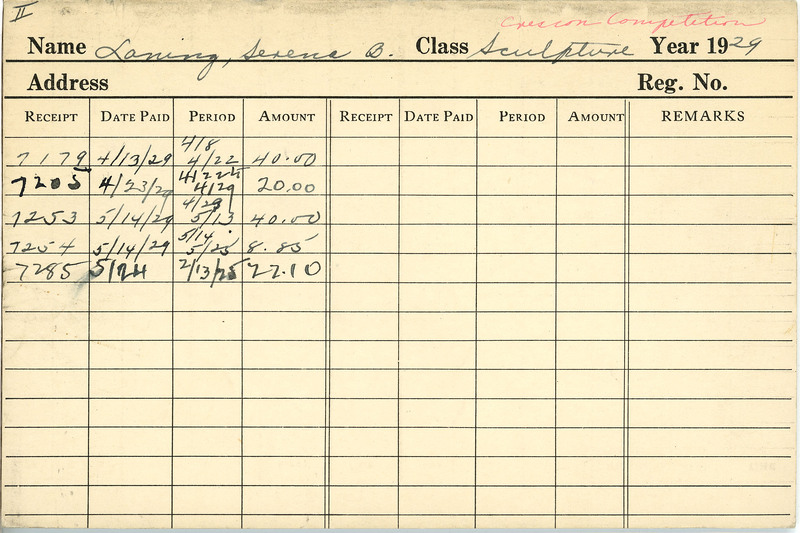 II
Cresson Competition
Name Laning, Serena B. Class Sculpture Year 1929
Address Reg. No.
RECEIPT DATE PAID PERIOD AMOUNT RECEIPT DATE PAID PERIOD AMOUNT REMARKS
4/8
7179 4/13/29 4/22 40.00
4/22
7205 4/23/29 4/29 20.00
4/29
7253 5/14/29 5/13 40.00
5/14
7254 5/14/29 5/25 8.85
7285 5/24 2/13/25 22.10